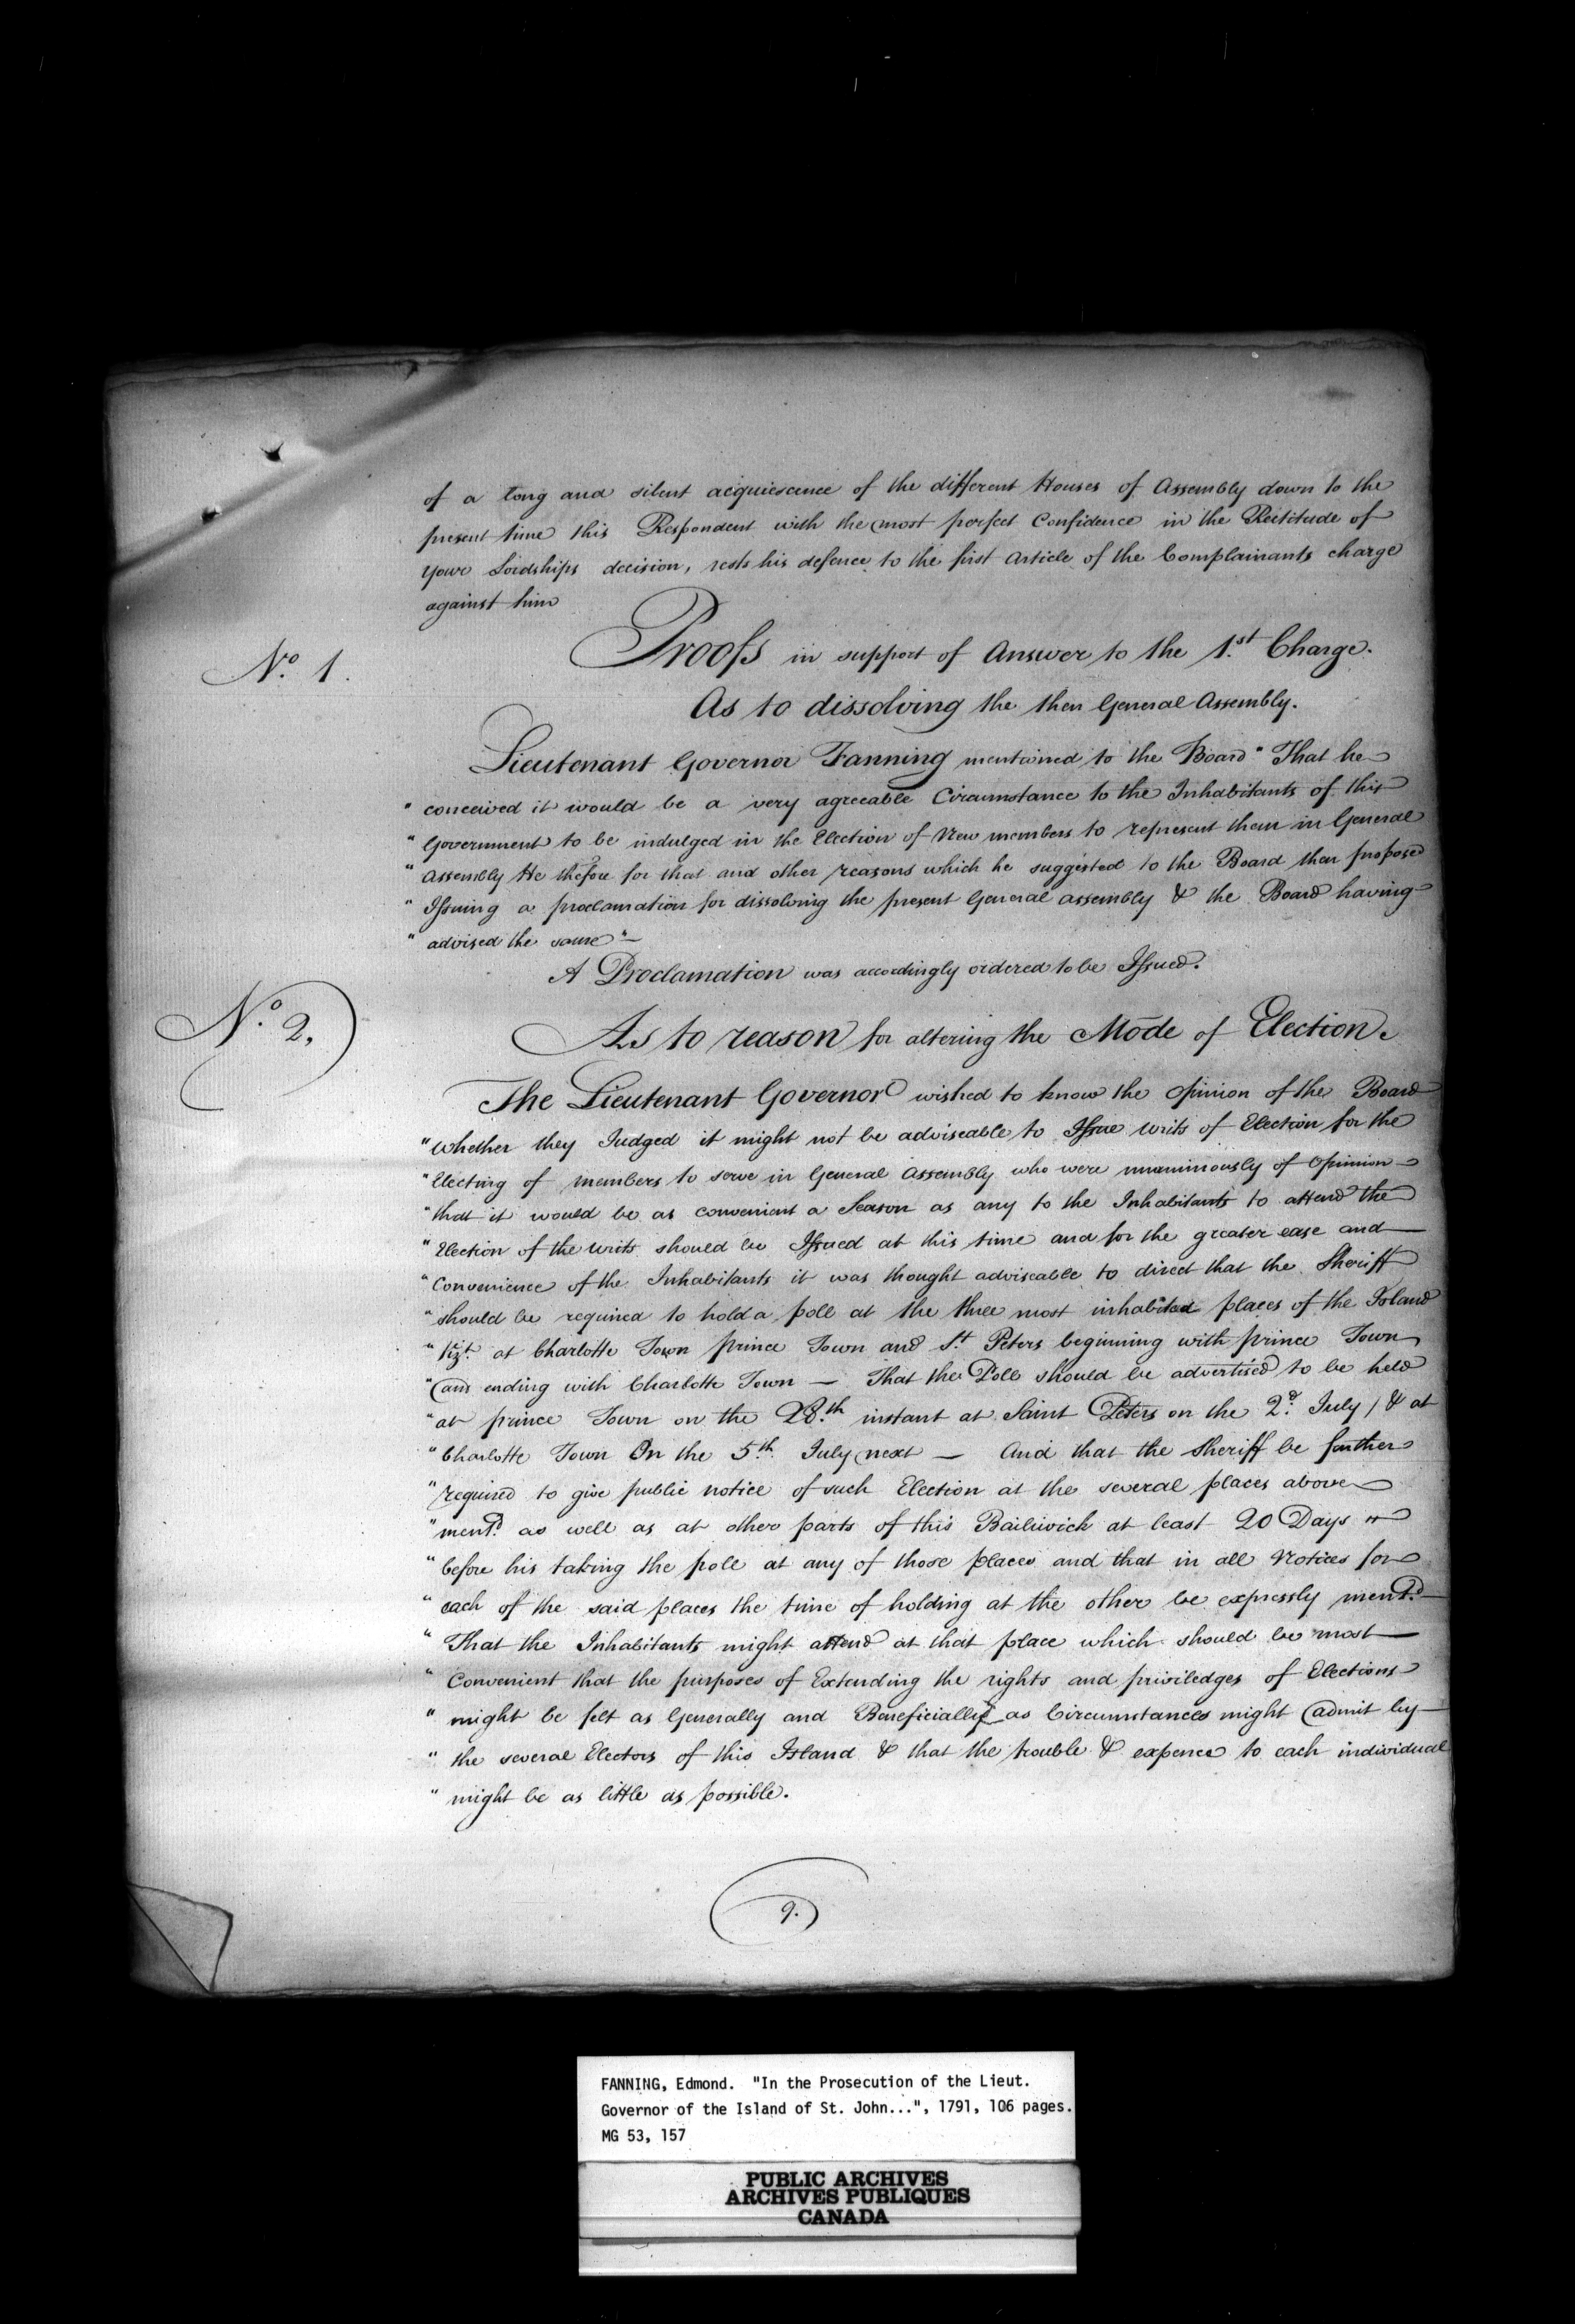 of a long and silent acquiescence of the different Houses of Assembly down to the
present time this Respondent with the most perfect Confidence in the Rectitude of
your Lordships decision, rests his defence to the first Article of the Complainants charge
against him
No. 1. Proofs in support of Answer to the 1.st Charge.
As to dissolving the then General Assembly.
Lieutenant Governor Fanning mentioned to the Board "That he
" conceived it would be a very agreeable Circumstance to the Inhabitants of this
" Government to be indulged in the Election of New members to represent them in General
" Assembly He thefore for that and other reasons which he suggested to the Board then proposed
" Issuing a proclamation for dissolving the present General assembly & the Board having
" advised the same" —
A Proclamation was accordingly ordered to be Issued.
No. 2, As to reason for altering the Mode of Election.
The Lieutenant Governor wished to know the Opinion of the Board
" Whether they Judged it might not be adviseable to Issue writs of Election for the
" Electing of members to serve in General Assembly who were unanimously of Opinion
" that it would be as convenient a Season as any to the Inhabitants to attend the
" Election of the writs should be Issued at this time and for the greater ease and
" Convenience of the Inhabitants it was thought adviseable to direct that the Sheriff
" should be required to hold a poll at the three most inhabited places of the Island
" Vizt. at Charlotte Town prince Town and St. Peters beginning with prince Town
" and ending with Charlotte Town — That the Poll should be advertised to be held
" at prince Town on the 28.th instant at Saint Peters on the 2.d July / & at
" Charlotte Town On the 5.th July next — And that the Sheriff be further
" required to give public notice of such Election at the several places above
" ment.d as well as at other parts of this Bailiwick at least 20 Days "
" before his taking the poll at any of those places and that in all Notices for
" each of the said places the time of holding at the other be expressly ment.d
" That the Inhabitants might attend at that place which should be most
" Convenient that the purposes of Extending the rights and priviledges of Elections
" might be felt as Generally and Beneficially as Circumstances might admit by
" the several Electors of this Island & that the trouble & expence to each individual
" might be as little as possible.
9.
FANNING, Edmond. "In the Prosecution of the Lieut.
Governor of the Island of St. John...", 1791, 106 pages.
MG 53, 157
PUBLIC ARCHIVES
ARCHIVES PUBLIQUES
CANADA